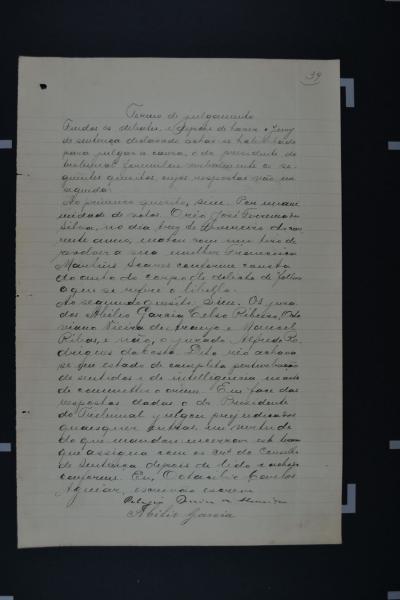 39
Termo de julgamento
Findos os debates, e depois de haver o Jury
de sentença declarado achar-se habilitado
para julgar a causa, o dr. presidente do
tribunal formulou verbalmente os se-
guintes quesitos, cujas respostas vão em
seguida:
Ao primeiro quesito, sim. Por unani-
midade de votos. O réo José Ferreira da
Silva, no dia trez de Fevereiro do cor-
rente anno, matou com um tiro de
revolver a sua mulher Francisca
Martins Soares conforme consta
do auto do corpo de delicto de folhas
a que se refere o libello.
Ao segundo quesito, Sim. Os jura-
dos Abilio Garcia, Celso Ribeiro, Octa-
viano Vieira de Araujo e Manoel
Ribas, e não, o jurado Alfredo Ro-
drigues da Costa. Dito réo achava
se em estado de completa perturbação
de sentidos e de intelligencia no acto
de commetter o crime. Em face das
respostas dadas o dr. Presidente
do Tribunal julgou prejudicados
quaesquer outros, em virtude
do que mandou encerrar este termo
que assigna com os do Conselho
de Sentença depois de lido e achado
conforme. Eu, Octacilio
Aguiar, escrivão escrevi.
de Almeida
Abilio Garcia